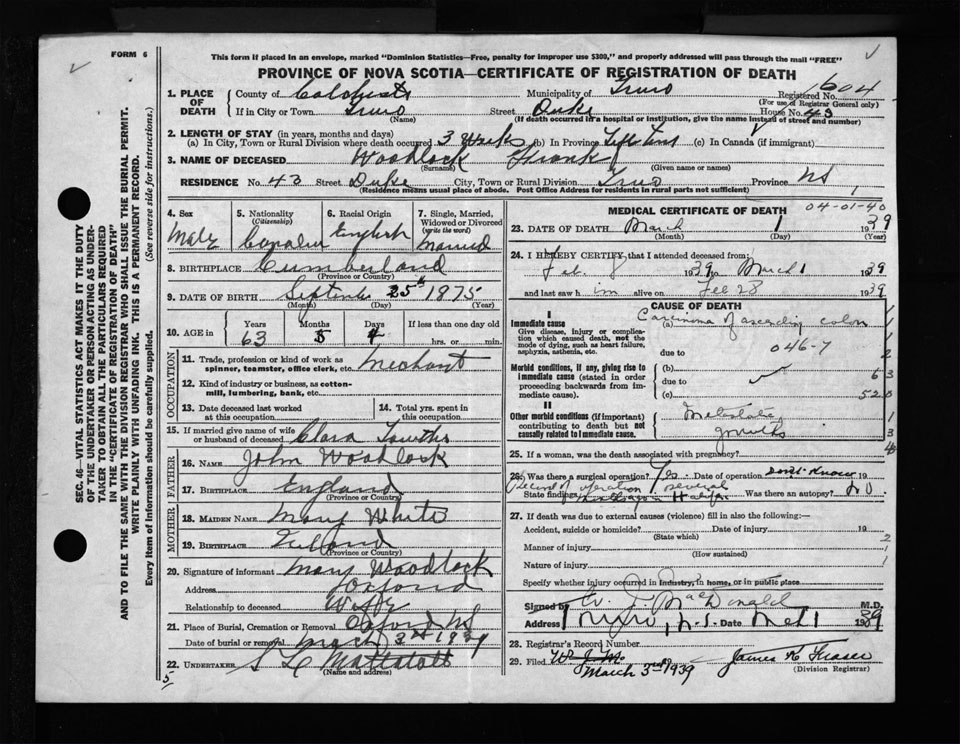 FORM 6
This form if placed in an envelope, marked "Dominion Statistics—Free, penalty for improper use $300," and properly addressed will pass through the mail "FREE"
PROVINCE OF NOVA SCOTIA—CERTIFICATE OF REGISTRATION OF DEATH
SEC. 46—VITAL STATISTICS ACT MAKES IT THE DUTY
OF THE UNDERTAKER OR PERSON ACTING AS UNDER-
TAKER TO OBTAIN ALL THE PARTICULARS REQUIRED
IN THE "CERTIFICATE OF REGISTRATION OF DEATH"
AND TO FILE THE SAME WITH THE DIVISION REGISTRAR WHO SHALL ISSUE THE BURIAL PERMIT.
WRITE PLAINLY WITH UNFADING INK. THIS IS A PERMANENT RECORD.
Every item of information should be carefully supplied. (See reverse side for instructions.)
1. PLACE OF DEATH
County of Colchester Municipality of Truro Registered No. 604
(For use of Registrar General only)
If in City or Town Truro Street Duke House No. 43
(Name) (If death occurred in a hospital or institution, give the name instead of street and number)
2. LENGTH OF STAY (in years, months and days)
(a) In City, Town or Rural Division where death occurred 3 Weeks (b) In Province Life Time (c) In Canada (if immigrant)
3. NAME OF DECEASED Woodlock Frank
(Surname) (Given or given names)
RESIDENCE No. 43 Street Duke City, Town or Rural Division Truro Province NS
(Residence means usual place of abode. Post Office Address for residents in rural parts not sufficient)
4. Sex Male
5. Nationality (Citizenship)
6. Racial Origin English
7. Single, Married, Widowed or Divorced (write the word) Married
8. BIRTHPLACE Cumberland
(Province or Country)
9. DATE OF BIRTH September 25th 1875
(Month) (Day) (Year)
10. AGE in Years 63 Months 5 Days 4 If less than one day old hrs. or min.
OCCUPATION
11. Trade, profession or kind of work as spinner, teamster, office clerk, etc. Merchant
12. Kind of industry or business, as cotton-mill, lumbering, bank, etc.
13. Date deceased last worked at this occupation
14. Total yrs. spent in this occupation
15. If married give name of wife or husband of deceased Clara Lowther
FATHER
16. NAME John Woodlock
17. BIRTHPLACE England
(Province or Country)
MOTHER
18. MAIDEN NAME Mary White
19. BIRTHPLACE Ireland
(Province or Country)
20. Signature of informant Mary Woodlock
Address Oxford
Relationship to deceased Wife
21. Place of Burial, Cremation or Removal Oxford NS
Date of burial or removal March 3rd 1939
22. UNDERTAKER
(Name and address)
MEDICAL CERTIFICATE OF DEATH 04-01-40
23. DATE OF DEATH March 1 1939
(Month) (Day) (Year)
24. I HEREBY CERTIFY, that I attended deceased from:
Feb. 8 1939 to March 1 1939
and last saw him alive on Feb 28 1939
CAUSE OF DEATH
I
Immediate cause
Give disease, injury or complication which caused death, not the mode of dying, such as heart failure, asphyxia, asthenia, etc.
(a) Carcinoma of ascending colon
due to 046-7
Morbid conditions, if any, giving rise to immediate cause (stated in order proceeding backwards from immediate cause).
(b)
due to
(c)
II
Other morbid conditions (if important) contributing to death but not causally related to immediate cause.
Metastatic
growths
25. If a woman, was the death associated with pregnancy?
26. Was there a surgical operation? Yes Date of operation Don't Know 19
State findings Record of operation Halifax Was there an autopsy? No.
27. If death was due to external causes (violence) fill in also the following:—
Accident, suicide or homicide? Date of injury 19
(State which)
Manner of injury
(How sustained)
Nature of injury
Specify whether injury occurred in industry, in home, or in public place
Signed by W. J. MacDonald M.D.
Address Truro, N.S. Date Mch 1 1939
28. Registrar's Record Number
29. Filed March 3rd 1939 James K Fraser
(Division Registrar)